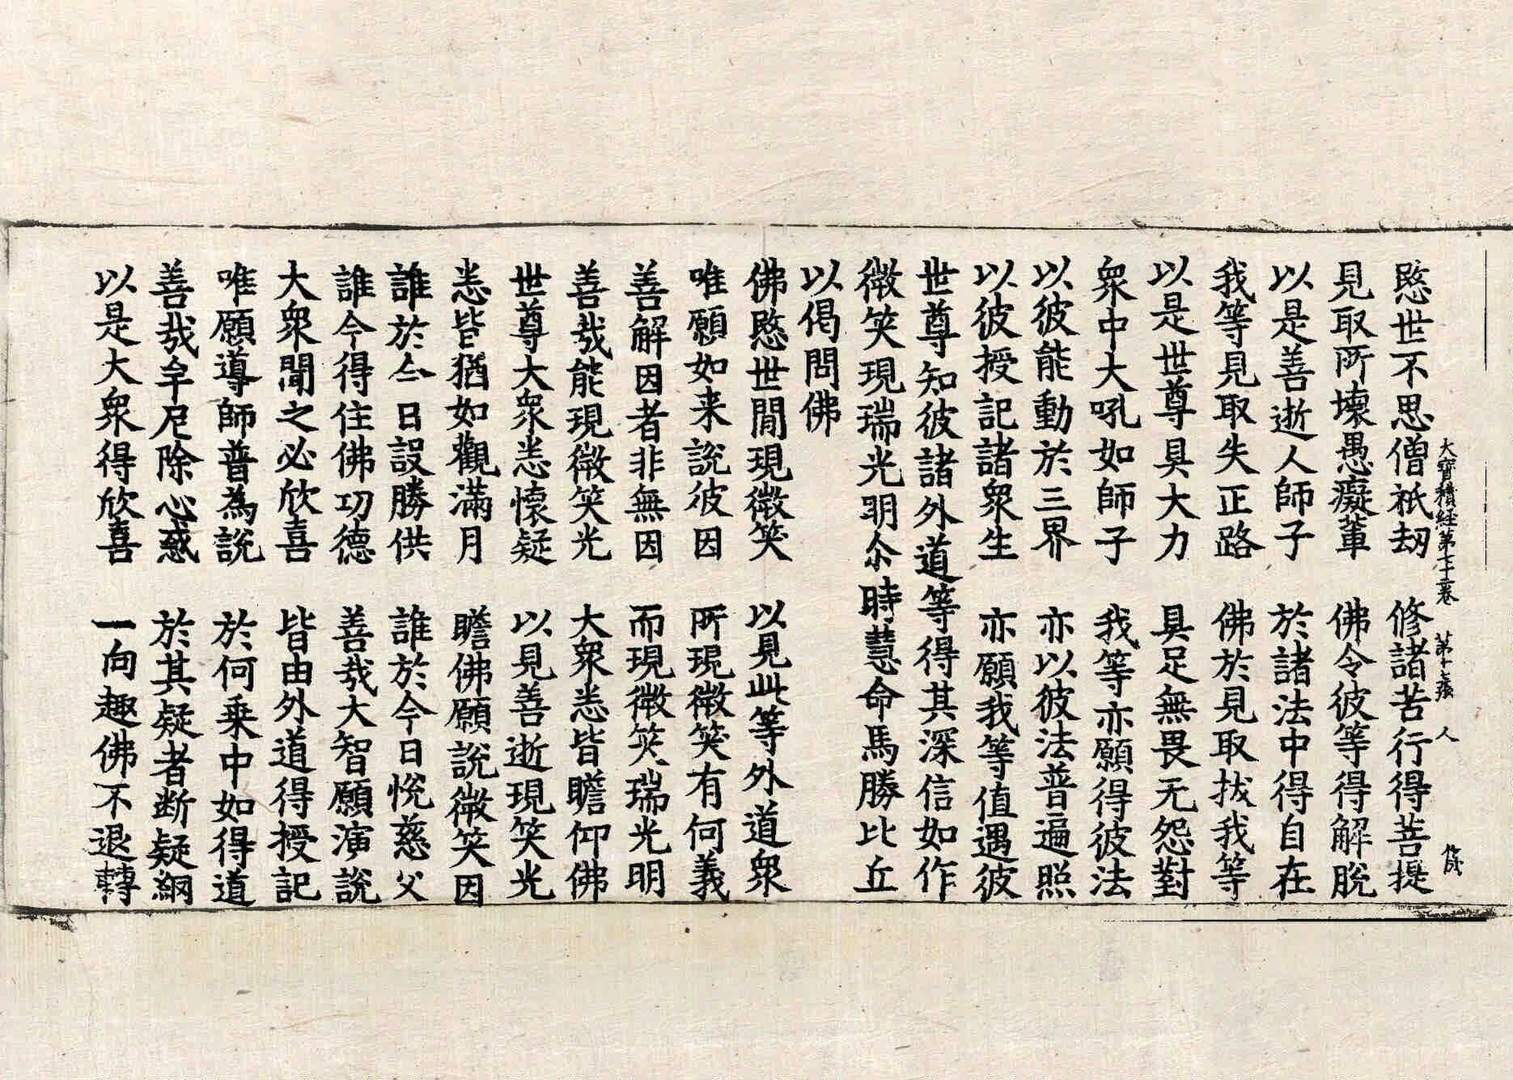 愍世不思僧祇劫　修諸苦行得菩提
大寶積經第七十三卷　第十七張　人
見取所壞愚癡輩　佛令彼等得解脫
以是善逝人師子　於諸法中得自在
我等見取失正路　佛於見取拔我等
以是世尊具大力　具足無畏无怨對
衆中大吼如師子　我等亦願得彼法
以彼能動於三界　亦以彼法普遍照
以彼授記諸衆生　亦願我等值遇彼
世尊知彼諸外道等得其深信如作
微笑現瑞光明尒時慧命馬勝比丘
以偈問佛
佛愍世間現微笑　以見此等外道衆
唯願如来說彼因　所現微笑有何義
善解因者非無因　而現微笑瑞光明
善哉能現微笑光　大衆悉皆瞻仰佛
世尊大衆悉懷疑　以見善逝現笑光
悉皆猶如觀滿月　瞻佛願說微笑因
誰於今日設勝供　誰於今日悅慈父
誰今得住佛功德　善哉大智願演說
大衆聞之必欣喜　皆由外道得授記
唯願導師普為說　於何乘中如得道
善哉牟尼除心惑　於其疑者断疑網
以是大衆得欣喜　一向趣佛不退轉